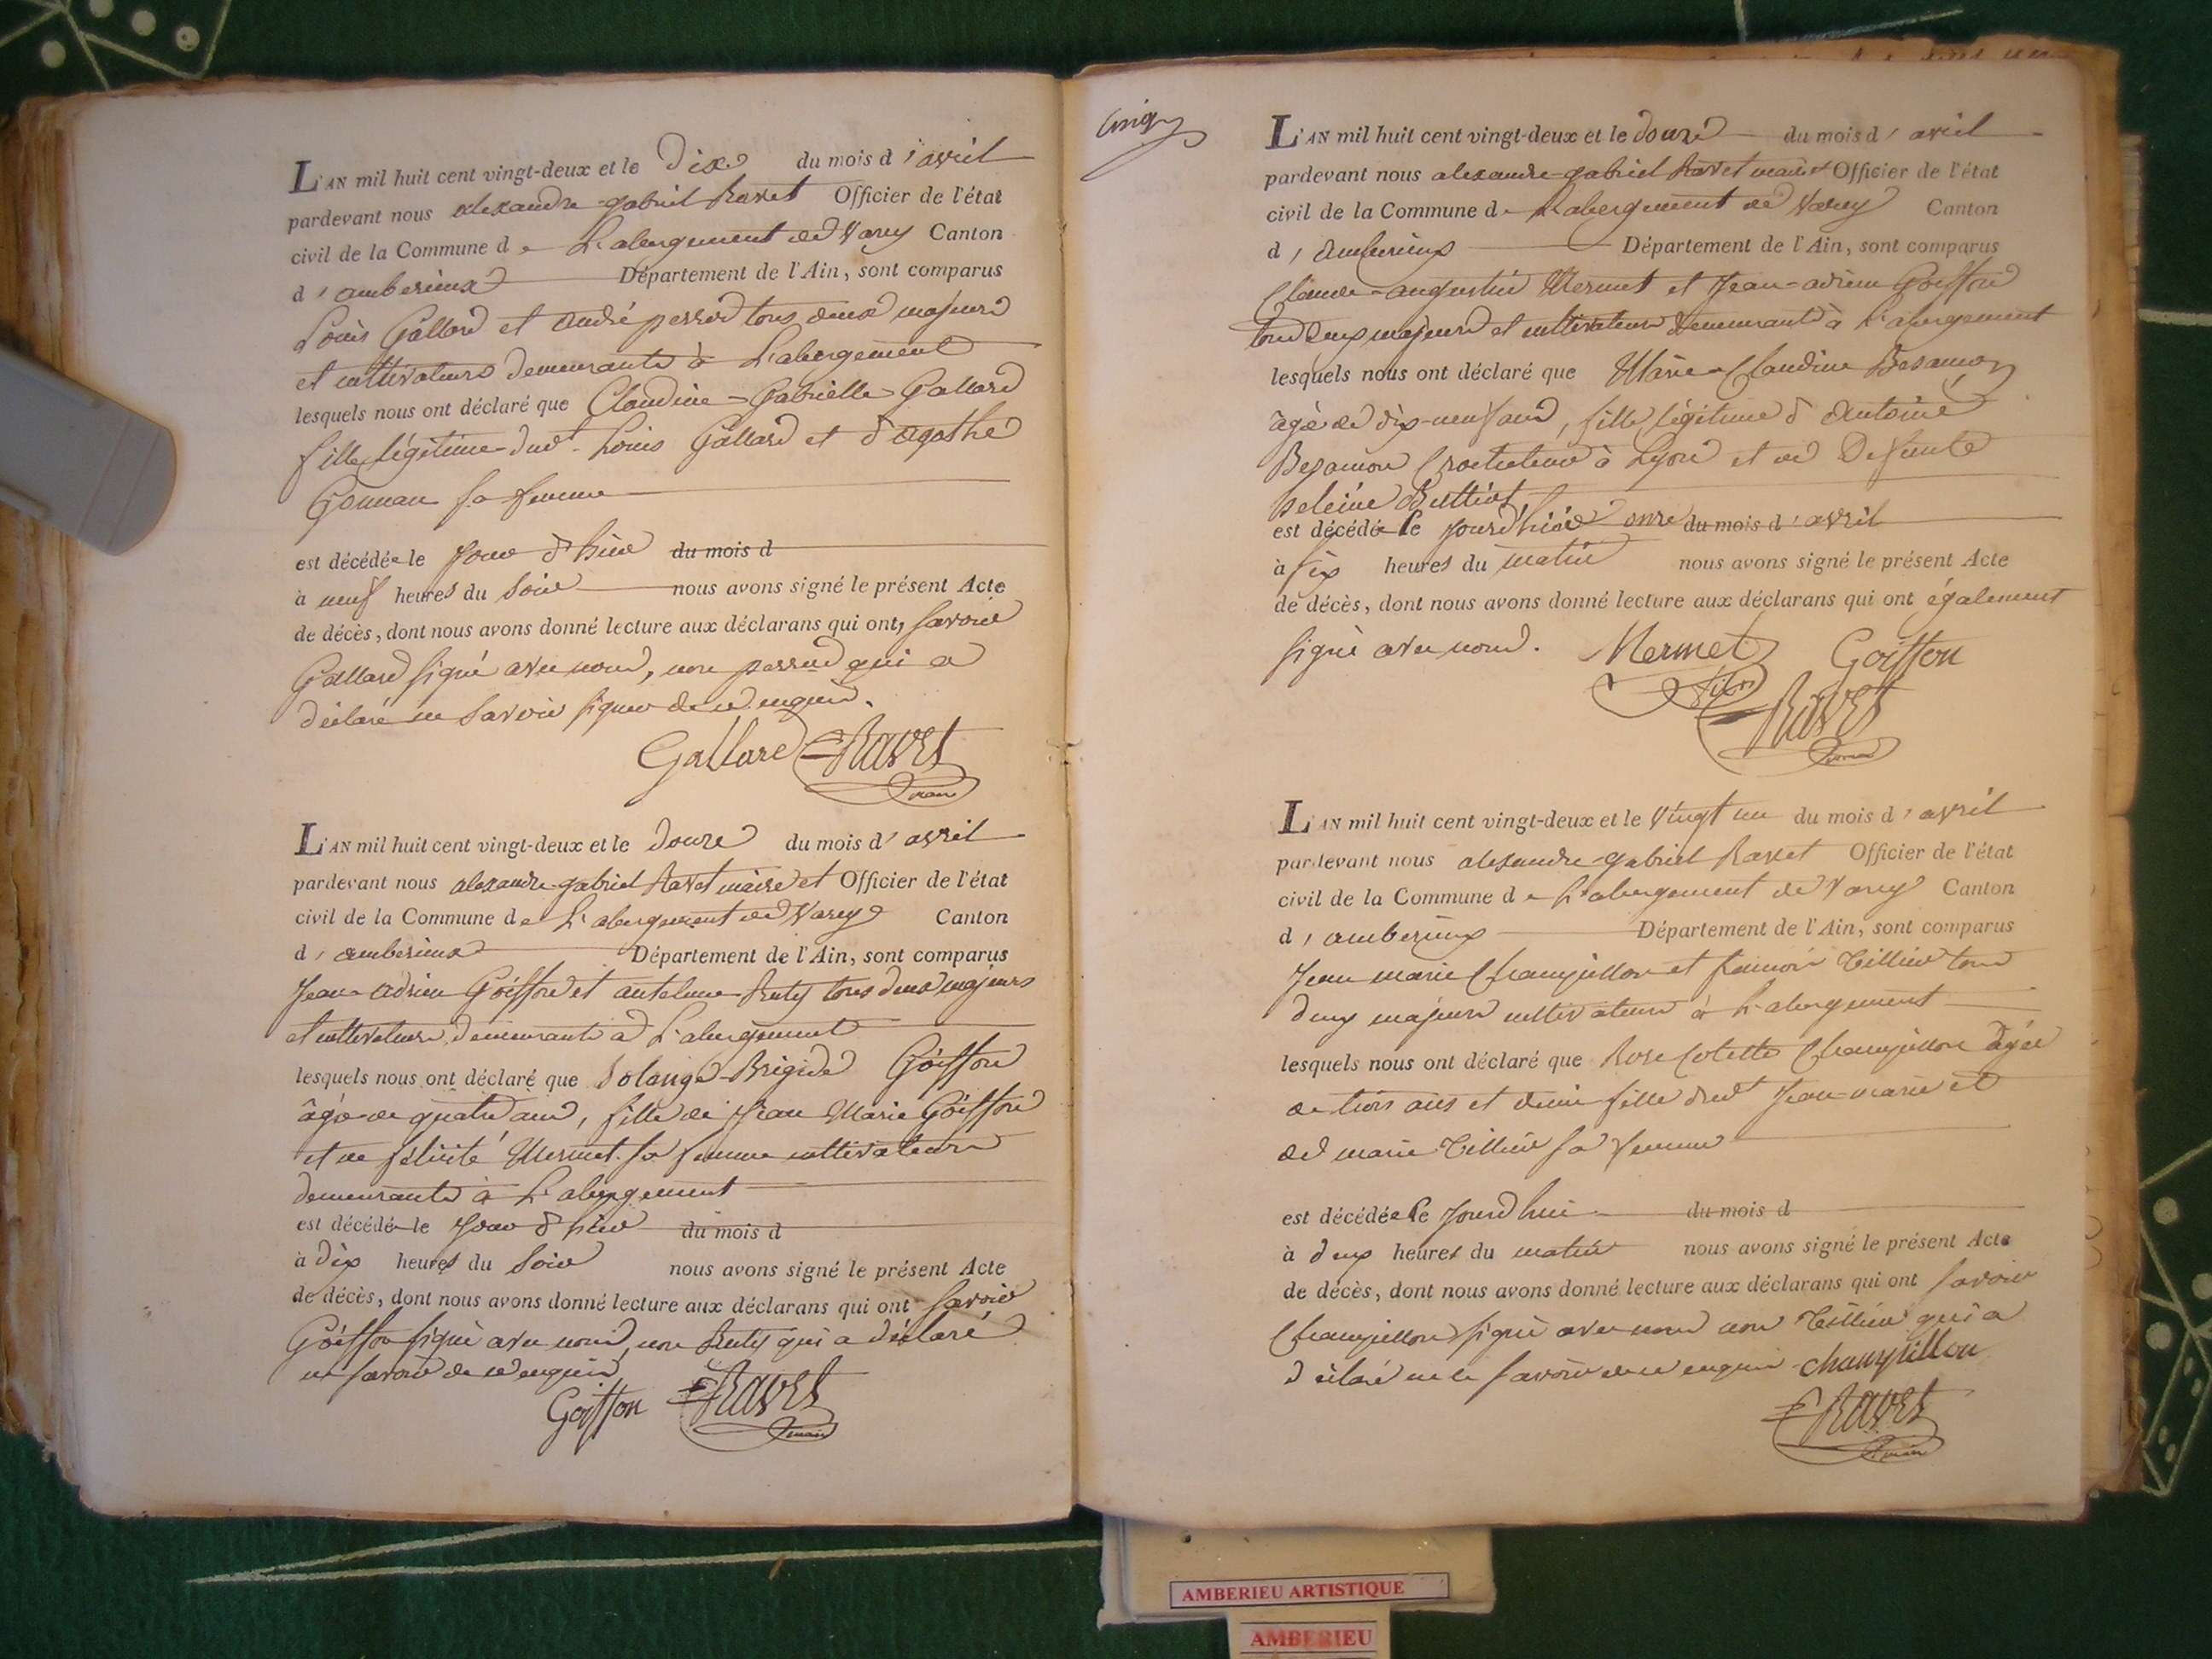 L'AN mil huit cent vingt-deux et le Dix du mois d'avril
pardevant nous alexandre gabriel Ravet Officier de l'état
civil de la Commune de L'abergement de Varey Canton
d'amberieux Département de l'Ain, sont comparus
Louis Gallard et andré perrod tous deux majeurs
et cultivateurs demeurants à L'abergement
lesquels nous ont déclaré que Claudine-Gabrielle Gallard
fille légitime dudt. Louis Gallard et d'agathe
sa femme
est décédée le jour d'hier du mois d
à neuf heures du soir nous avons signé le présent Acte
de décès, dont nous avons donné lecture aux déclarans qui ont, savoir
Gallard signé avec nous, non perrod qui a
déclaré ne savoir signer de ce enquis.
Gallard Ravet
maire
L'AN mil huit cent vingt-deux et le Douze du mois d'avril
pardevant nous alexandre-gabriel Ravet maire et Officier de l'état
civil de la Commune de L'abergement de Varey Canton
d'amberieux Département de l'Ain, sont comparus
Jean-adrien Goiffon et antelme tous deux majeurs
et cultivateurs demeurants à L'abergement
lesquels nous ont déclaré que Solange-Brigide Goiffon
âgée de quatre ans, fille de Jean Marie Goiffon
et de félicité Mermet sa femme cultivateurs
demeurants à L'abergement
est décédée le jour d'hier du mois d
à dix heures du soir nous avons signé le présent Acte
de décès, dont nous avons donné lecture aux déclarans qui ont savoir
Goiffon signé avec nous, non qui a déclaré
ne savoir de ce enquis
Goiffon Ravet
maire
L'AN mil huit cent vingt-deux et le douze du mois d'avril
pardevant nous alexandre gabriel Ravet maire et Officier de l'état
civil de la Commune de L'abergement de Varey Canton
d'amberieux Département de l'Ain, sont comparus
Claude-augustin Mermet et Jean-adrien Goiffon
tous deux majeurs et cultivateurs demeurants à L'abergement
lesquels nous ont déclaré que Marie Claudine Besançon
âgée de dix-neuf ans, fille légitime d'Antoine
Besançon à Lyon et de Defunte
est décédée le jourd'hier onze du mois d'avril
à six heures du matin nous avons signé le présent Acte
de décès, dont nous avons donné lecture aux déclarans qui ont également
signé avec nous. Mermet Goiffon
Ravet
maire
L'AN mil huit cent vingt-deux et le vingt un du mois d'avril
pardevant nous alexandre-gabriel Ravet Officier de l'état
civil de la Commune de L'abergement de Varey Canton
d'amberieux Département de l'Ain, sont comparus
Jean marie Champillon et françois Tillier tous
deux majeurs cultivateurs à L'abergement
lesquels nous ont déclaré que Rose Colette Champillon âgée
de trois ans et demi fille dudt Jean-marie et
de marie Tillier sa femme
est décédée le jourd'hui du mois d
à deux heures du matin nous avons signé le présent Acte
de décès, dont nous avons donné lecture aux déclarans qui ont savoir
Champillon signé avec nous non Tillier qui a
déclaré ne le savoir de ce enquis champillon
Ravet
maire
AMBERIEU ARTISTIQUE
AMBERIEU